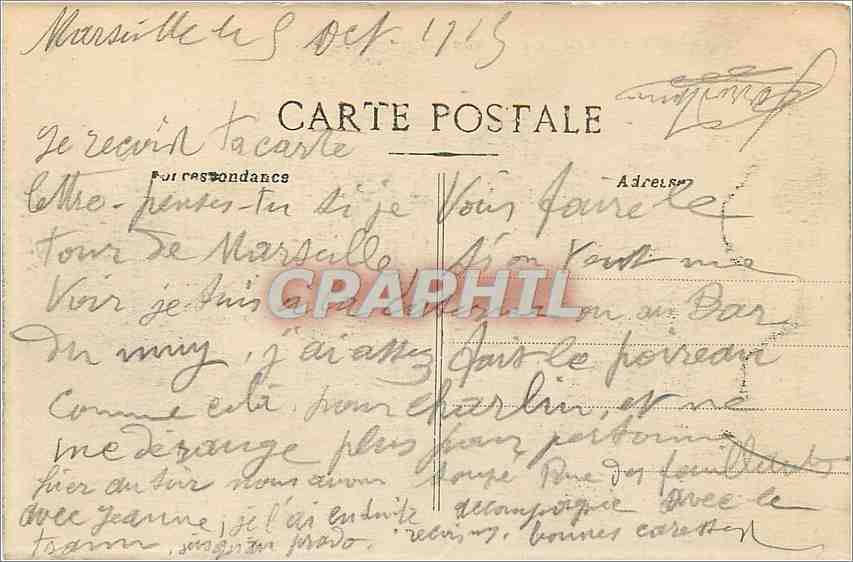 Marseille le 5 Oct. 1915
CARTE POSTALE
je recoid ta carte
Correspondance
Adresse
lettre - penses-tu si je vais faire le
tour de Marseille, si on veut me
voir je suis à la caserne ou au Bar
du muy, j'ai assez fait le poireau
comme cela pour charlin, et ne
me dérange plus pour personne
hier au soir nous avons soupé Rue des feuillants
avec jeanne, je l'ai enduite accompagnée avec le
tramm, jusqu'au prado. bonnes caresses
CPAPHIL